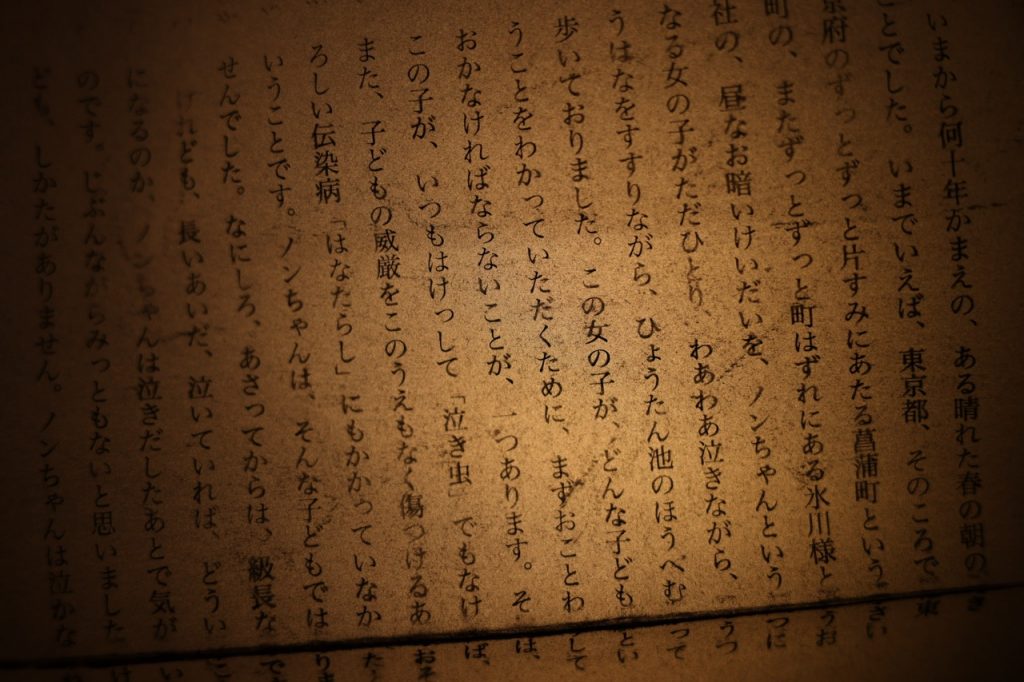 いまから何十年かまえの、ある晴れた春の朝の
ことでした。いまでいえば、東京都、そのころで、東
京府のずっとずっと片すみにあたる菖蒲町という さい
町の、またずっとずっと町はずれにある氷川様と うお
社の、昼なお暗いけいだいを、ノンちゃんという つに
なる女の子がただひとり、わあわあ泣きながら、 うつ
うはなをすすりながら、ひょうたん池のほうへむ って
歩いておりました。この女の子が、どんな子ども とい
うことをわかっていただくために、まずおことわ して
おかなければならないことが、一つあります。そ は、
この子が、いつもはけっして「泣き虫」でもなけ ば、
また、子どもの威厳をこのうえもなく傷つけるあ おそ
ろしい伝染病「はなたらし」にもかかっていなか た
いうことです。ノンちゃんは、そんな子どもでは りま
せんでした。なにしろ、あさってからは、級長な で
けれども、長いあいだ、泣いていれば、どうい こ
になるのか、ノンちゃんは泣きだしたあとで気が い
のです。じぶんながらみっともないと思いました け
ども、しかたがありません。ノンちゃんは泣かな